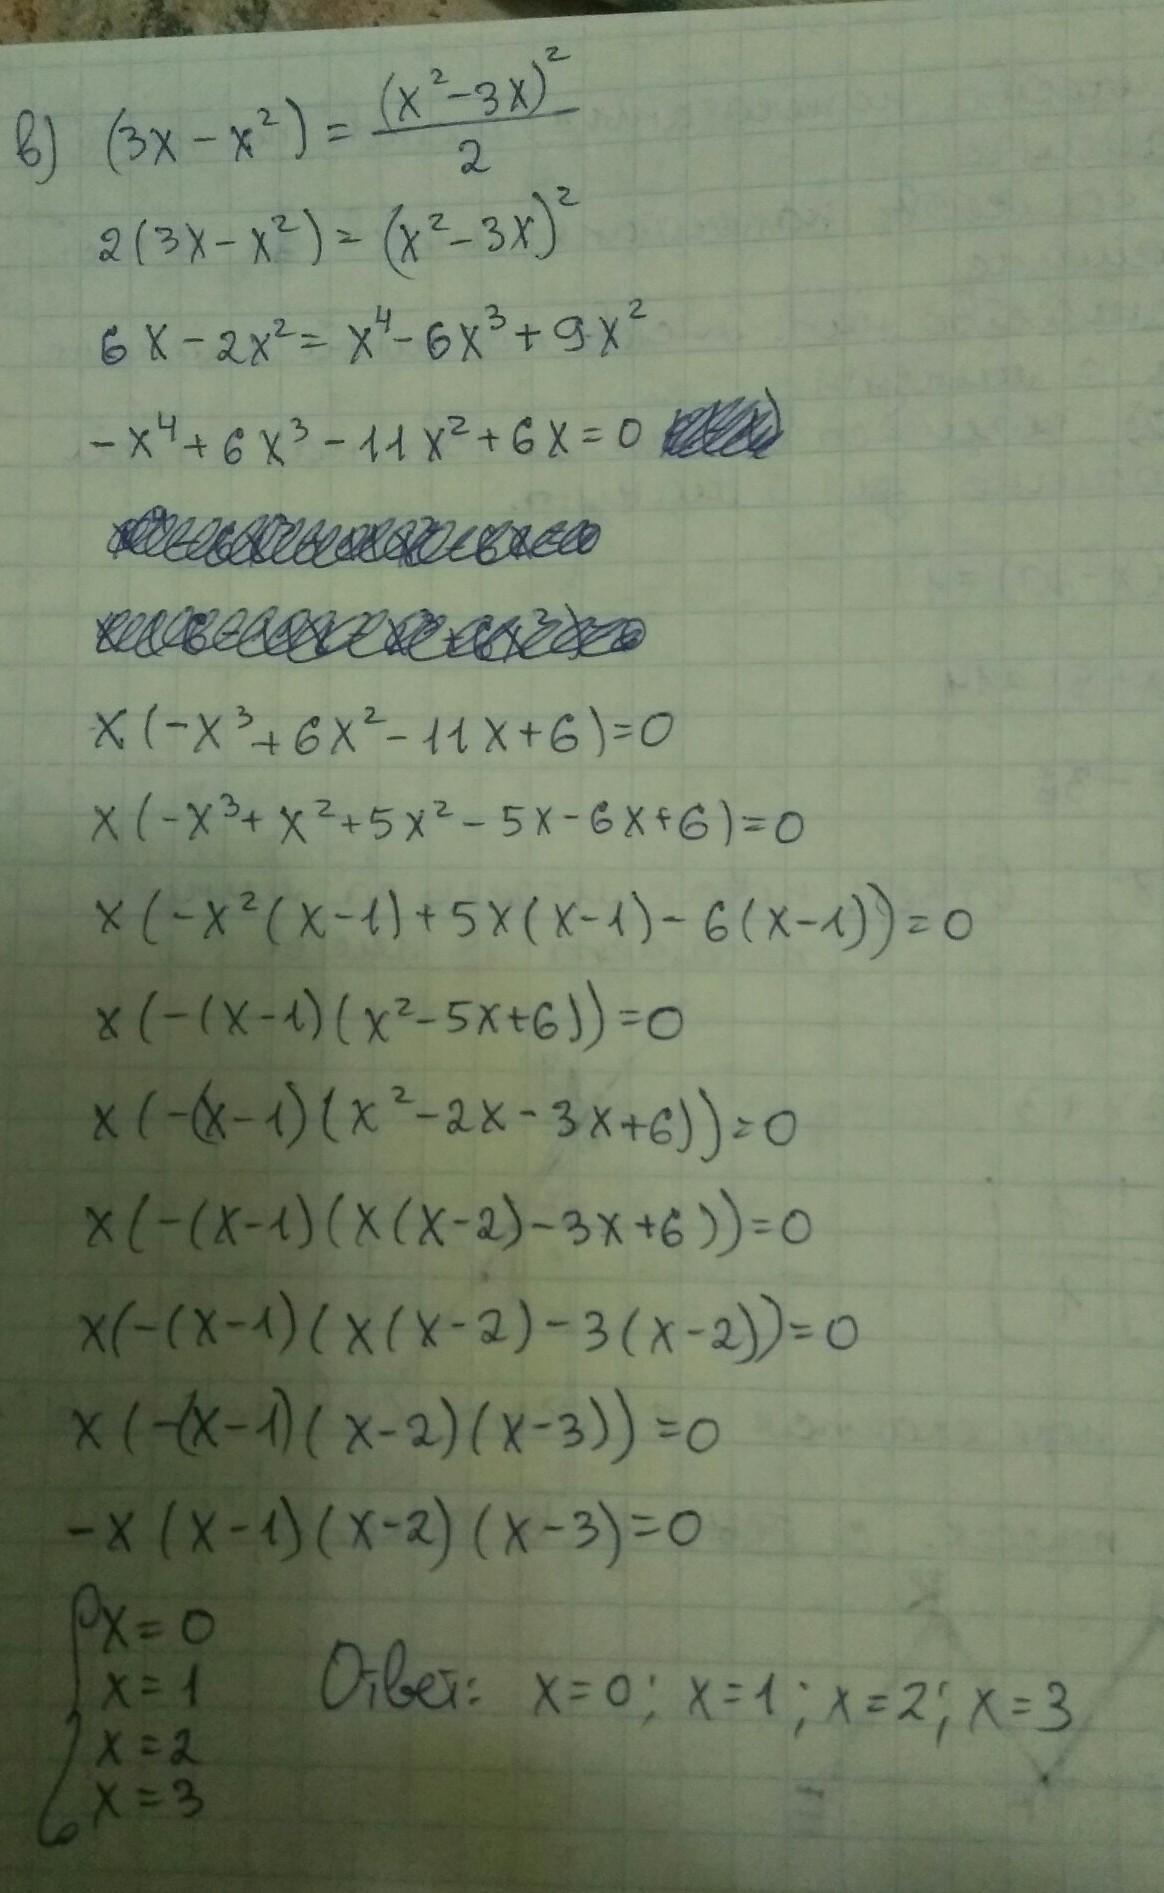 в) (3x - x²) = (x² - 3x)²/2
2(3x - x²) = (x² - 3x)²
6x - 2x² = x⁴ - 6x³ + 9x²
-x⁴ + 6x³ - 11x² + 6x = 0
x(-x³ + 6x² - 11x + 6) = 0
x(-x³ + x² + 5x² - 5x - 6x + 6) = 0
x(-x²(x-1) + 5x(x-1) - 6(x-1)) = 0
x(-(x-1)(x² - 5x + 6)) = 0
x(-(x-1)(x² - 2x - 3x + 6)) = 0
x(-(x-1)(x(x-2) - 3x + 6)) = 0
x(-(x-1)(x(x-2) - 3(x-2)) = 0
x(-(x-1)(x-2)(x-3)) = 0
-x(x-1)(x-2)(x-3) = 0
x = 0
x = 1
x = 2
x = 3
Ответ: x=0; x=1; x=2; x=3